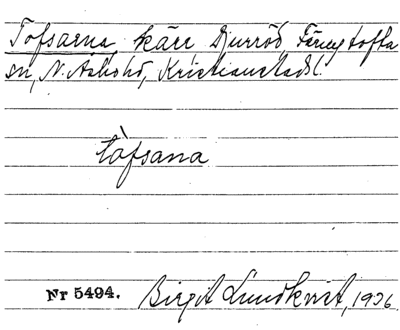 Tofsarna, kärr Djurröd, Färingtofta
sn, N. Åsbohd, Kristianstadsl.
tòfsana
Nr 5494. Birgit Lundkvist, 1936